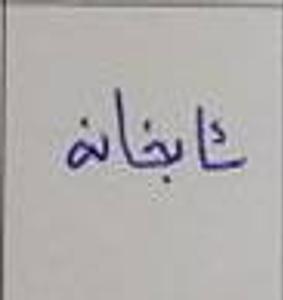 شابخانه